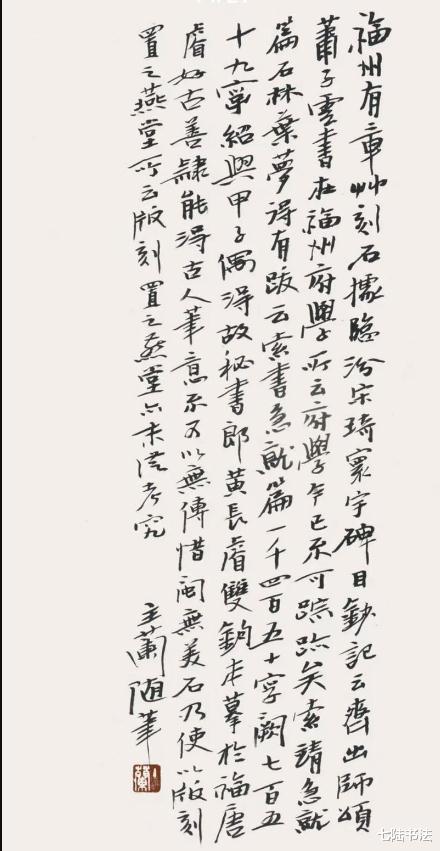 福州有二章艸刻石據臨汾宋琦寰宇碑目鈔記云齊出師頌
蕭子雲書在福州府學所云府學今已不可踪跡矣索靖急就
篇石林葉夢得有跋云索書急就篇一千四百五十字闕七百五
十九字紹興甲子偶得故秘書郎黄長睿雙鉤本摹於福唐
睿好古善隸能得古人筆意不可以無傳惜閩無美石乃使以版刻
置之燕堂所云版刻置之燕堂亦未從考究
主蘭随筆
七陆书法